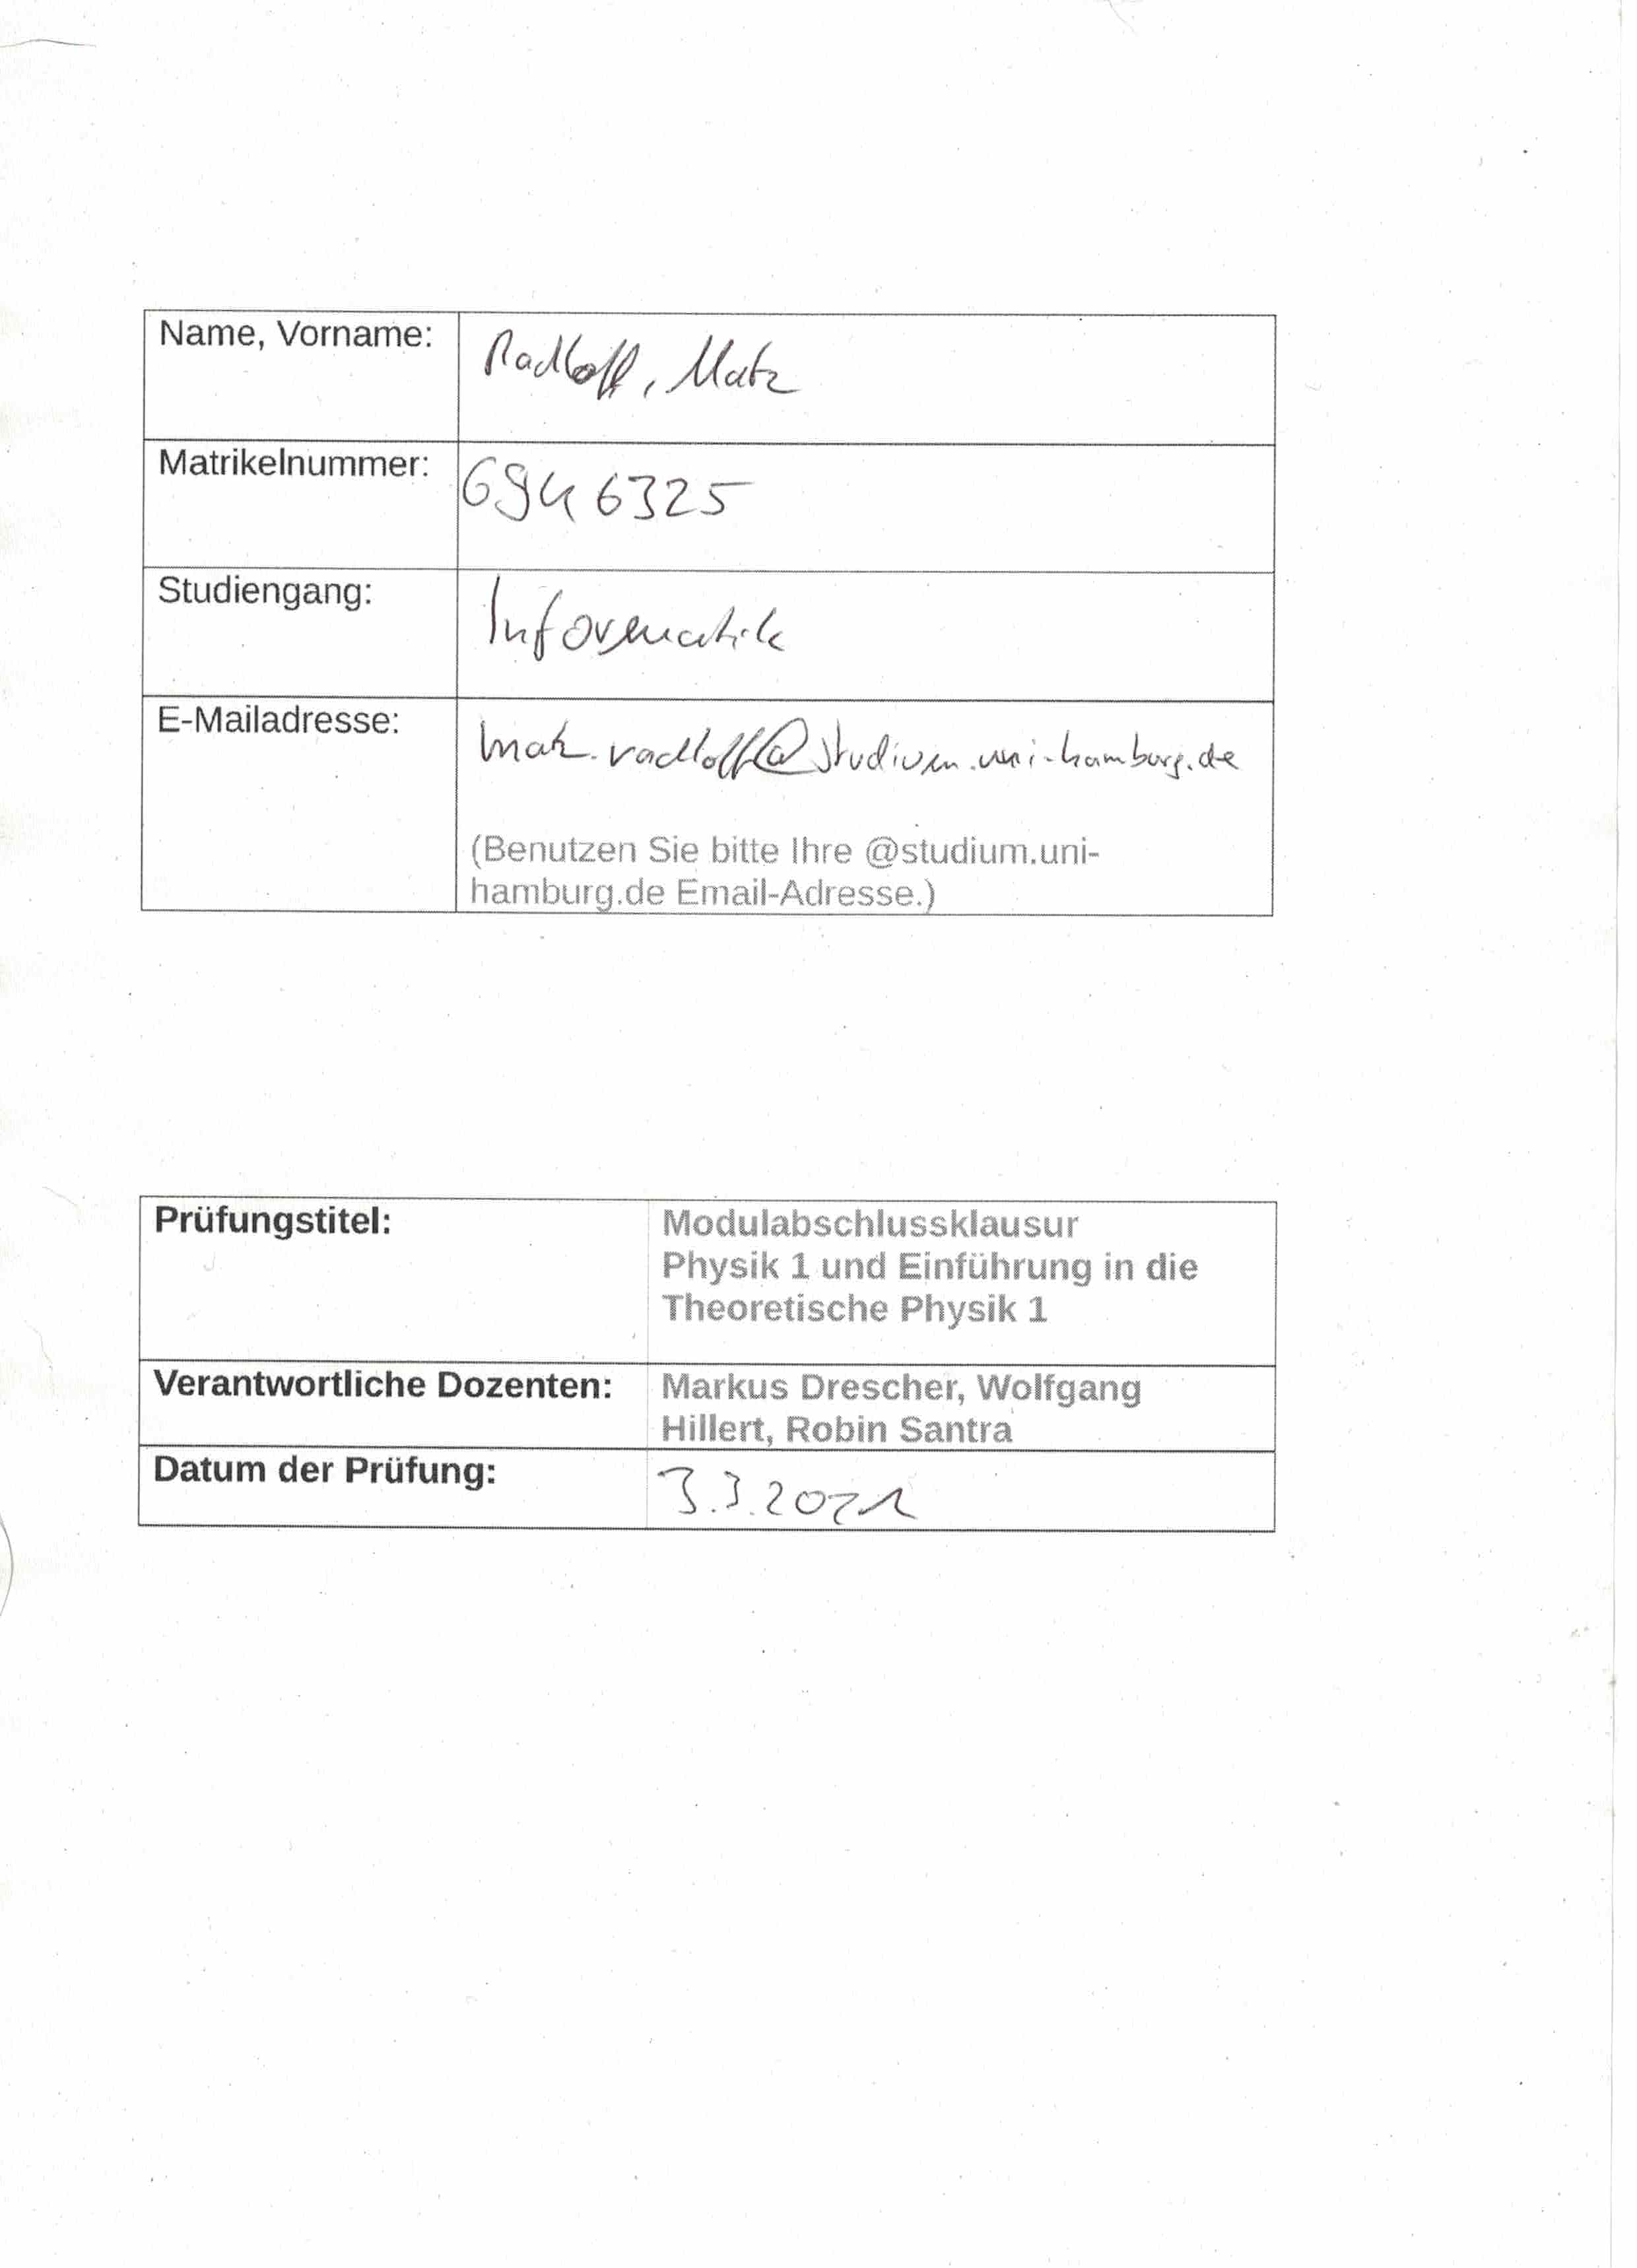 Name, Vorname:
Radloff, Matz
Matrikelnummer:
6946325
Studiengang:
Informatik
E-Mailadresse:
matz.radloff@studium.uni-hamburg.de
(Benutzen Sie bitte Ihre @studium.uni-
hamburg.de Email-Adresse.)
Prüfungstitel:
Modulabschlussklausur
Physik 1 und Einführung in die
Theoretische Physik 1
Verantwortliche Dozenten:
Markus Drescher, Wolfgang
Hillert, Robin Santra
Datum der Prüfung:
3.3.2021